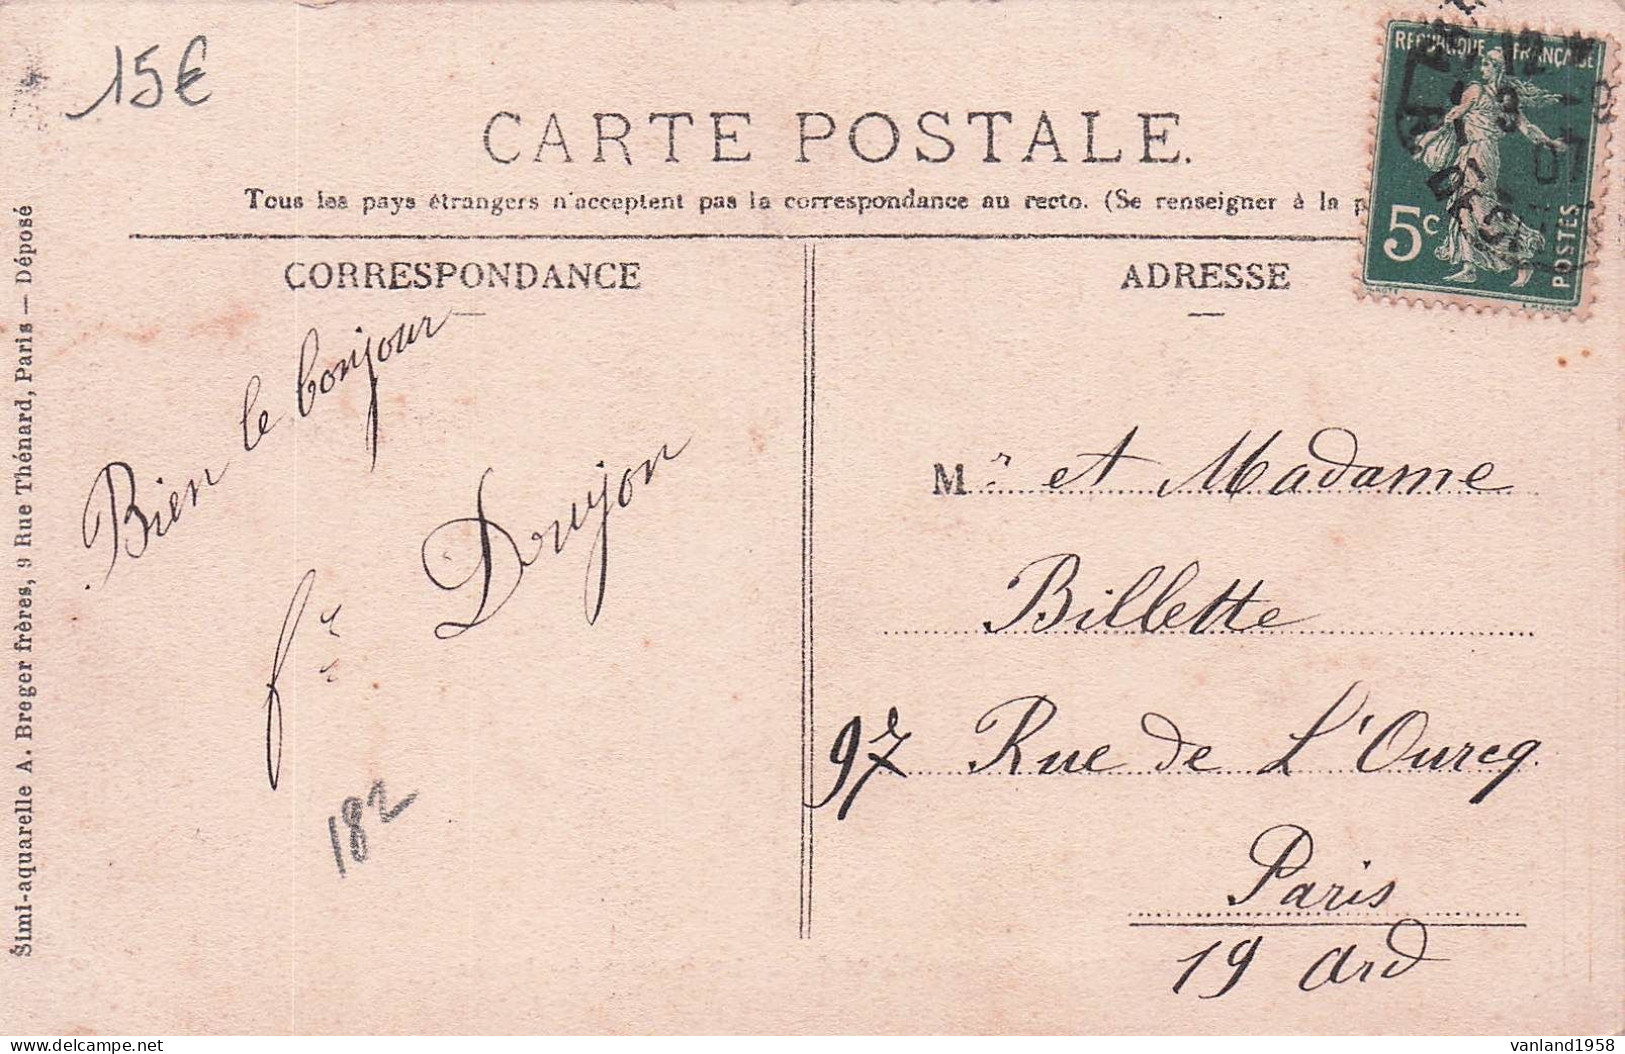 15€
CARTE POSTALE.
Tous les pays étrangers n'acceptent pas la correspondance au recto. (Se renseigner à la p
CORRESPONDANCE
ADRESSE
REPUBLIQUE FRANÇAISE
5c
POSTES
12
3
07
Bien le bonjour
fr Doujon
182
Mr et Madame
Billette
97 Rue de L'Ourcq.
Paris
19 ard
Simi-aquarelle A. Breger frères, 9 Rue Thénard, Paris — Déposé
vanland1958